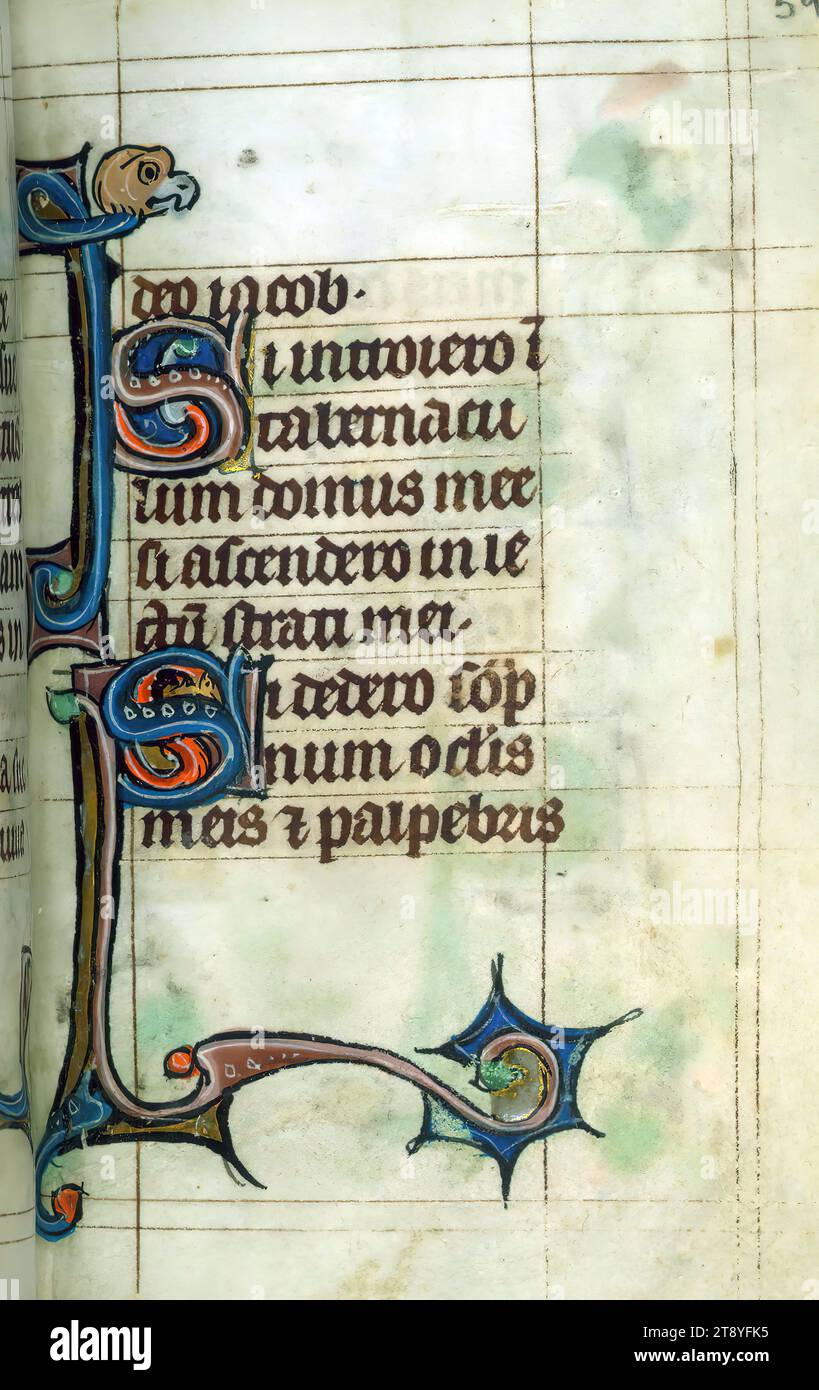 deo iacob.
Si introiero ī
tabernacu
lum domus mee
si ascendero in le
ctū strati mei.
Si dedero sōp
num oclīs
meis ⁊ palpebris
alamy
alamy
alamy
alamy
Image ID: 2T8YFK5
www.alamy.com